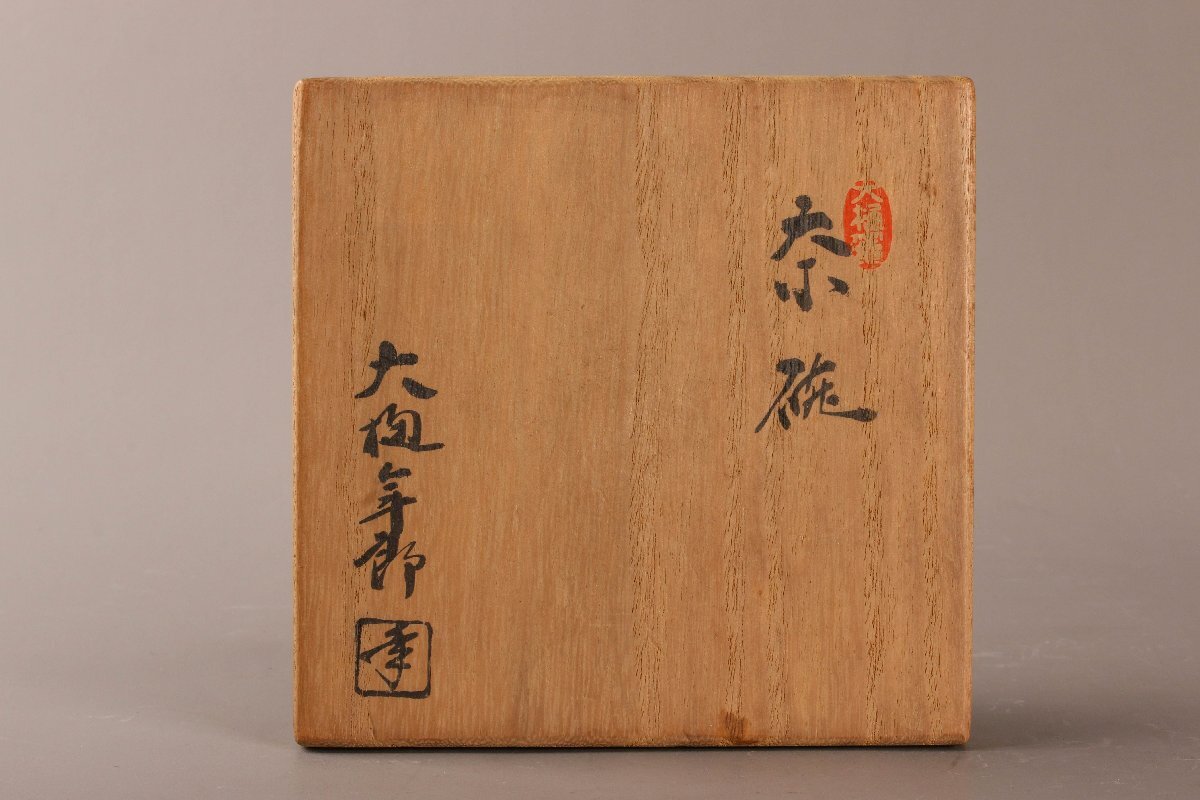 茶碗
大樋年郎
年
大樋